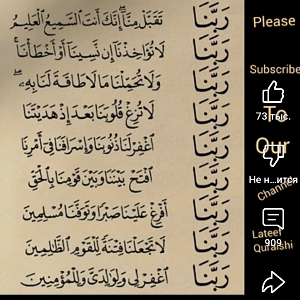 رَبَّنَا تَقَبَّلْ مِنَّا إِنَّكَ أَنتَ السَّمِيعُ الْعَلِيمُ
رَبَّنَا لَا تُؤَاخِذْنَا إِن نَّسِينَا أَوْ أَخْطَأْنَا
رَبَّنَا وَلَا تُحَمِّلْنَا مَا لَا طَاقَةَ لَنَا بِهِ
رَبَّنَا لَا تُزِغْ قُلُوبَنَا بَعْدَ إِذْ هَدَيْتَنَا
رَبَّنَا اغْفِرْ لَنَا ذُنُوبَنَا وَإِسْرَافَنَا فِي أَمْرِنَا
رَبَّنَا افْتَحْ بَيْنَنَا وَبَيْنَ قَوْمِنَا بِالْحَقِّ
رَبَّنَا أَفْرِغْ عَلَيْنَا صَبْرًا وَتَوَفَّنَا مُسْلِمِينَ
رَبَّنَا لَا تَجْعَلْنَا فِتْنَةً لِّلْقَوْمِ الظَّالِمِينَ
رَبَّنَا اغْفِرْ لِي وَلِوَالِدَيَّ وَلِلْمُؤْمِنِينَ
Please
Subscribe
73 тыс.
To
Our
Не н...ится
Channel
Lateef
909
Quraishi